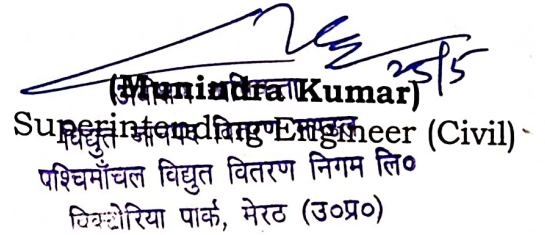 25/5
(Munindra Kumar)
Superintending Engineer (Civil)
विद्युत वितरण
पश्चिमाँचल विद्युत वितरण निगम लि०
विक्टोरिया पार्क, मेरठ (उ०प्र०)